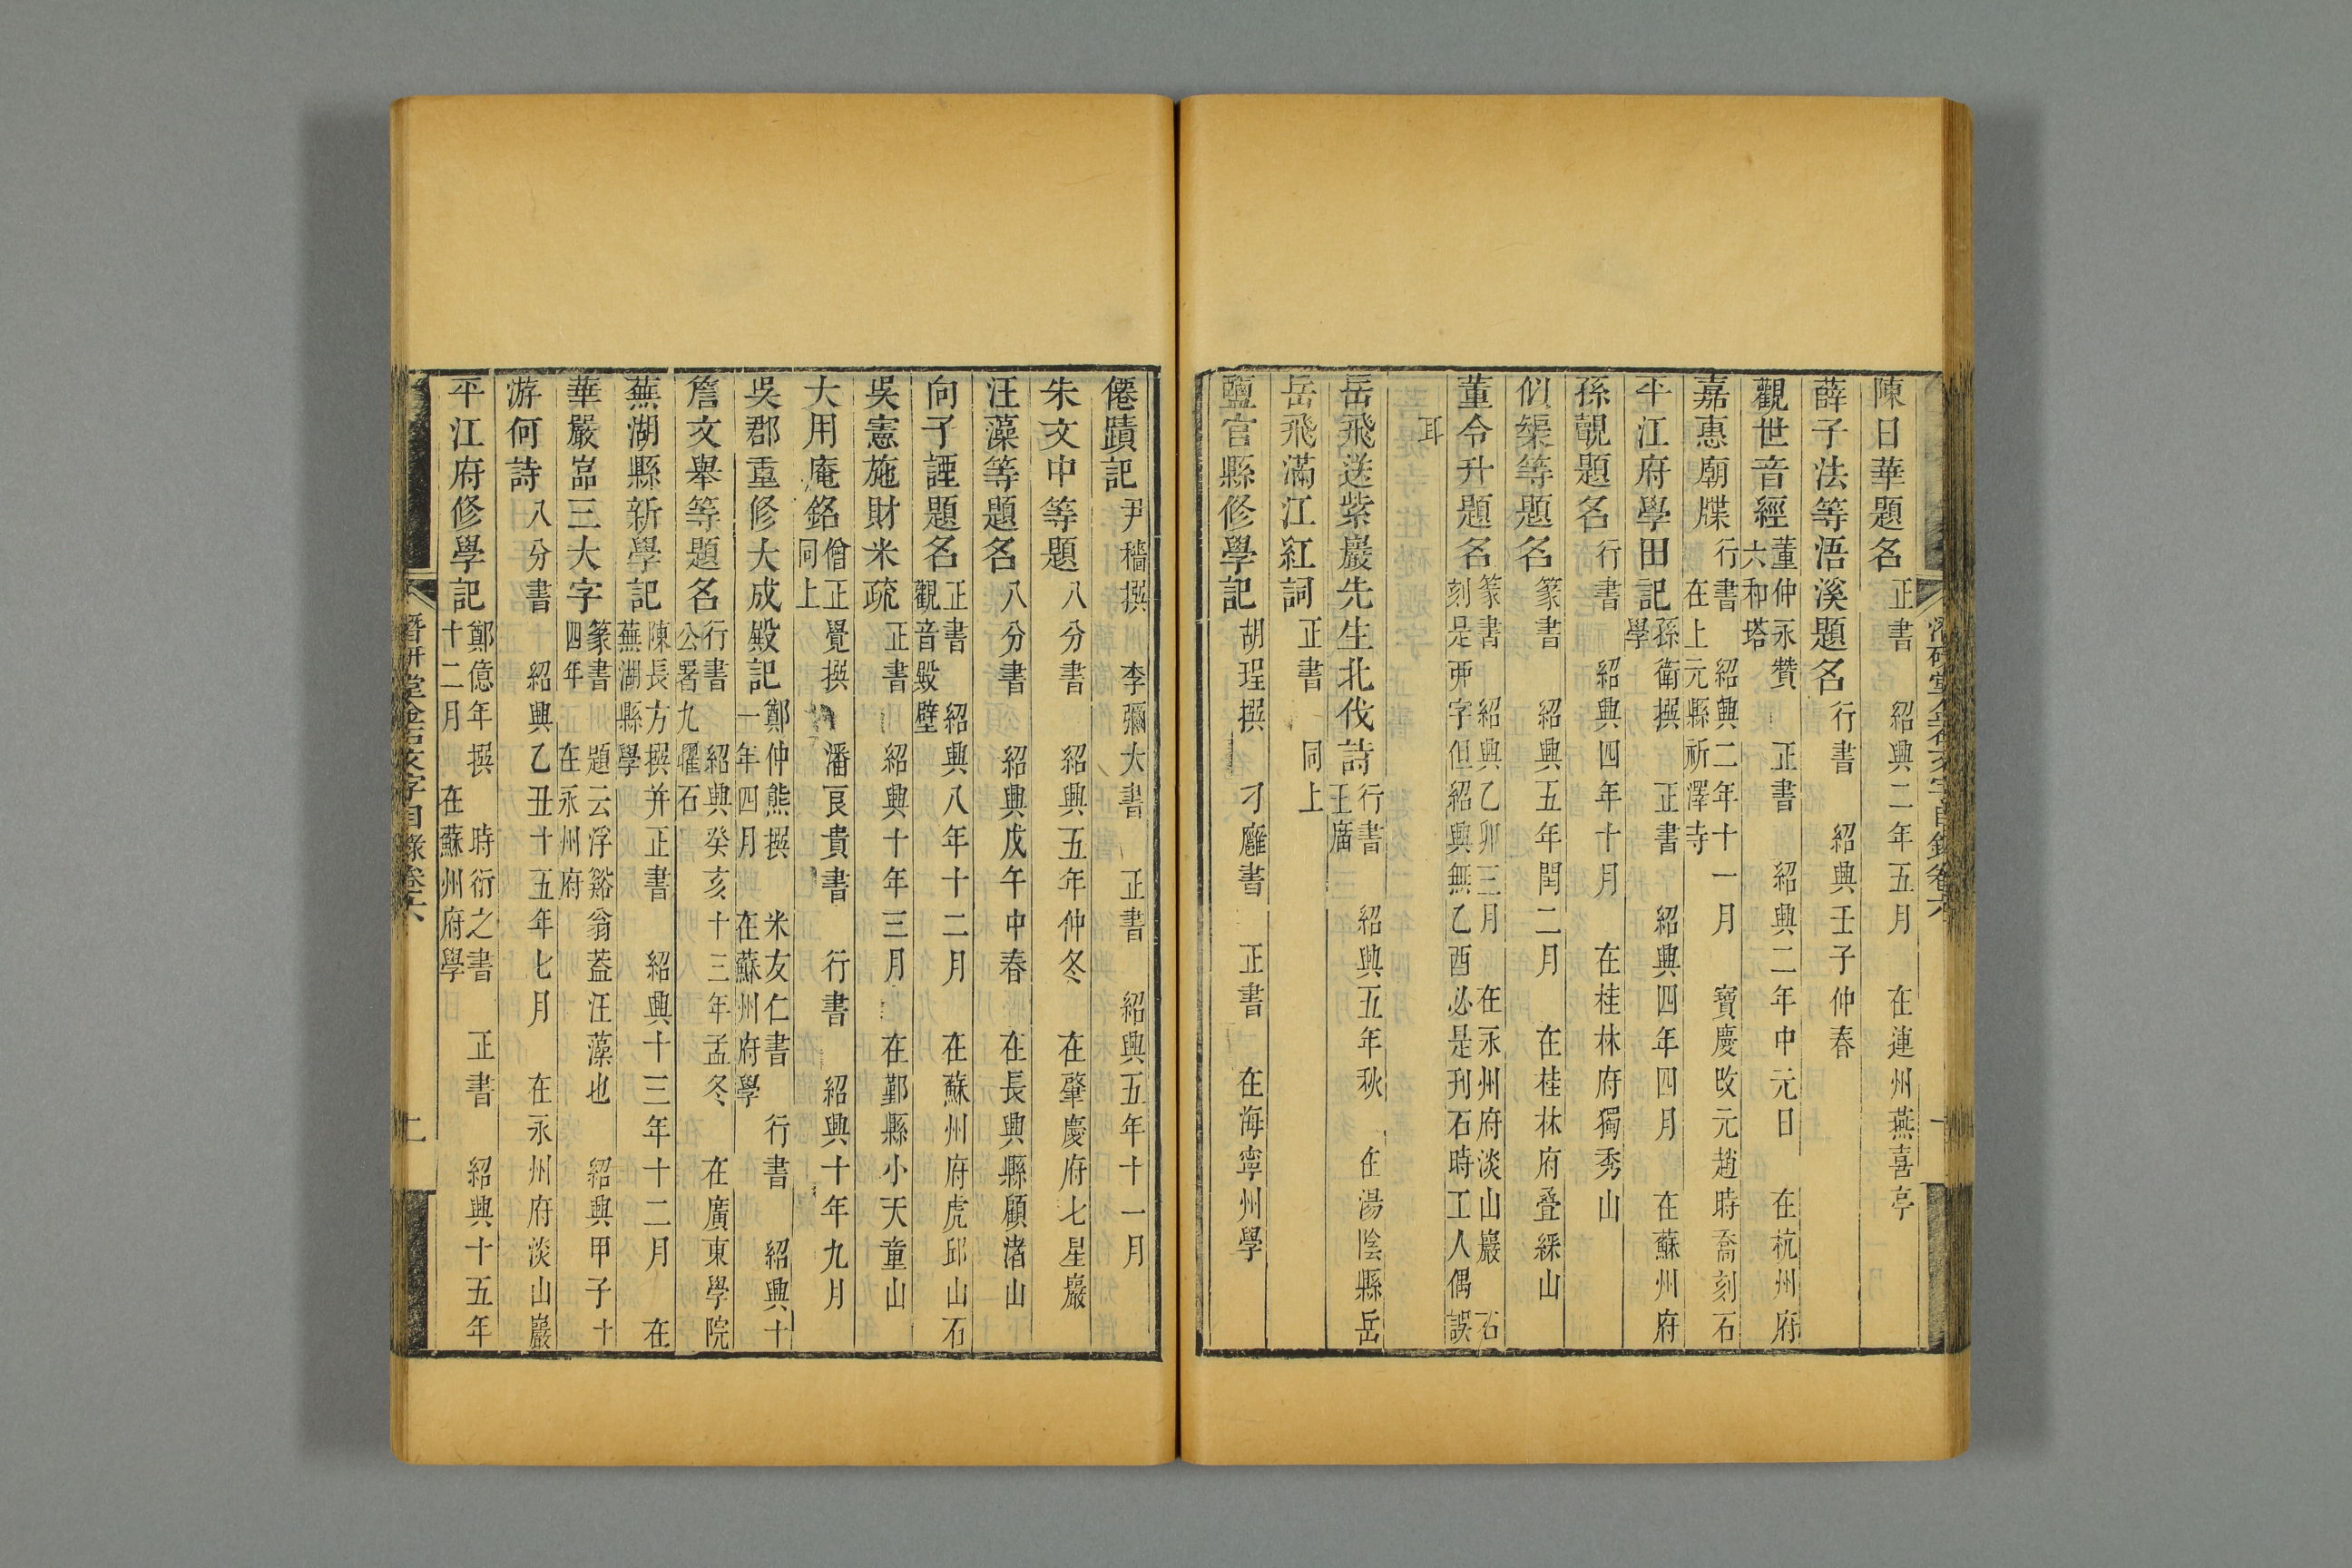 陳日華題名 正書 紹興二年五月 在連州燕喜亭
薛子法等浯溪題名 行書 紹興壬子仲春
觀世音經 董仲永贊 正書 紹興二年中元日 在杭州府
六和塔
嘉惠廟牒 行書 紹興二年十一月 寶慶改元趙時喬刻石
在上元縣祈澤寺
平江府學田記 孫衛撰 正書 紹興四年四月 在蘇州府
學
孫覿題名 行書 紹興四年十月 在桂林府獨秀山
似榘等題名 篆書 紹興五年閏二月 在桂林府疊綵山
董令升題名 篆書 紹興乙卯三月 在永州府淡山巖 石
刻是丣字但紹興無乙酉必是刋石時工人偶誤
耳
岳飛送紫巖先生北伐詩 行書 紹興五年秋 在湯陰縣岳
王廣
岳飛滿江紅詞 正書 同上
鹽官縣修學記 胡珵撰 刁廱書 正書 在海寧州學
僊蹟記 尹穡撰 李彌大書 正書 紹興五年十一月
朱文中等題 八分書 紹興五年仲冬 在肇慶府七星巖
汪藻等題名 八分書 紹興戊午中春 在長興縣顧渚山
向子諲題名 正書 紹興八年十二月 在蘇州府虎邱山石
觀音殿壁
吳憲施財米疏 正書 紹興十年三月 在鄞縣小天童山
大用庵銘 僧正覺撰 潘良貴書 行書 紹興十年九月
同上
吳郡重修大成殿記 鄭仲熊撰 米友仁書 行書 紹興十
一年四月 在蘇州府學
詹文舉等題名 行書 紹興癸亥十三年孟冬 在廣東學院
公署九曜石
蕪湖縣新學記 陳長方撰并正書 紹興十三年十二月 在
蕪湖縣學
華嚴嵓三大字 篆書 題云浮谿翁葢汪藻也 紹興甲子十
四年 在永州府
游何詩 八分書 紹興乙丑十五年七月 在永州府淡山巖
平江府修學記 鄭億年撰 時衍之書 正書 紹興十五年
十二月 在蘇州府學
潛研堂金石文字目錄卷六 二